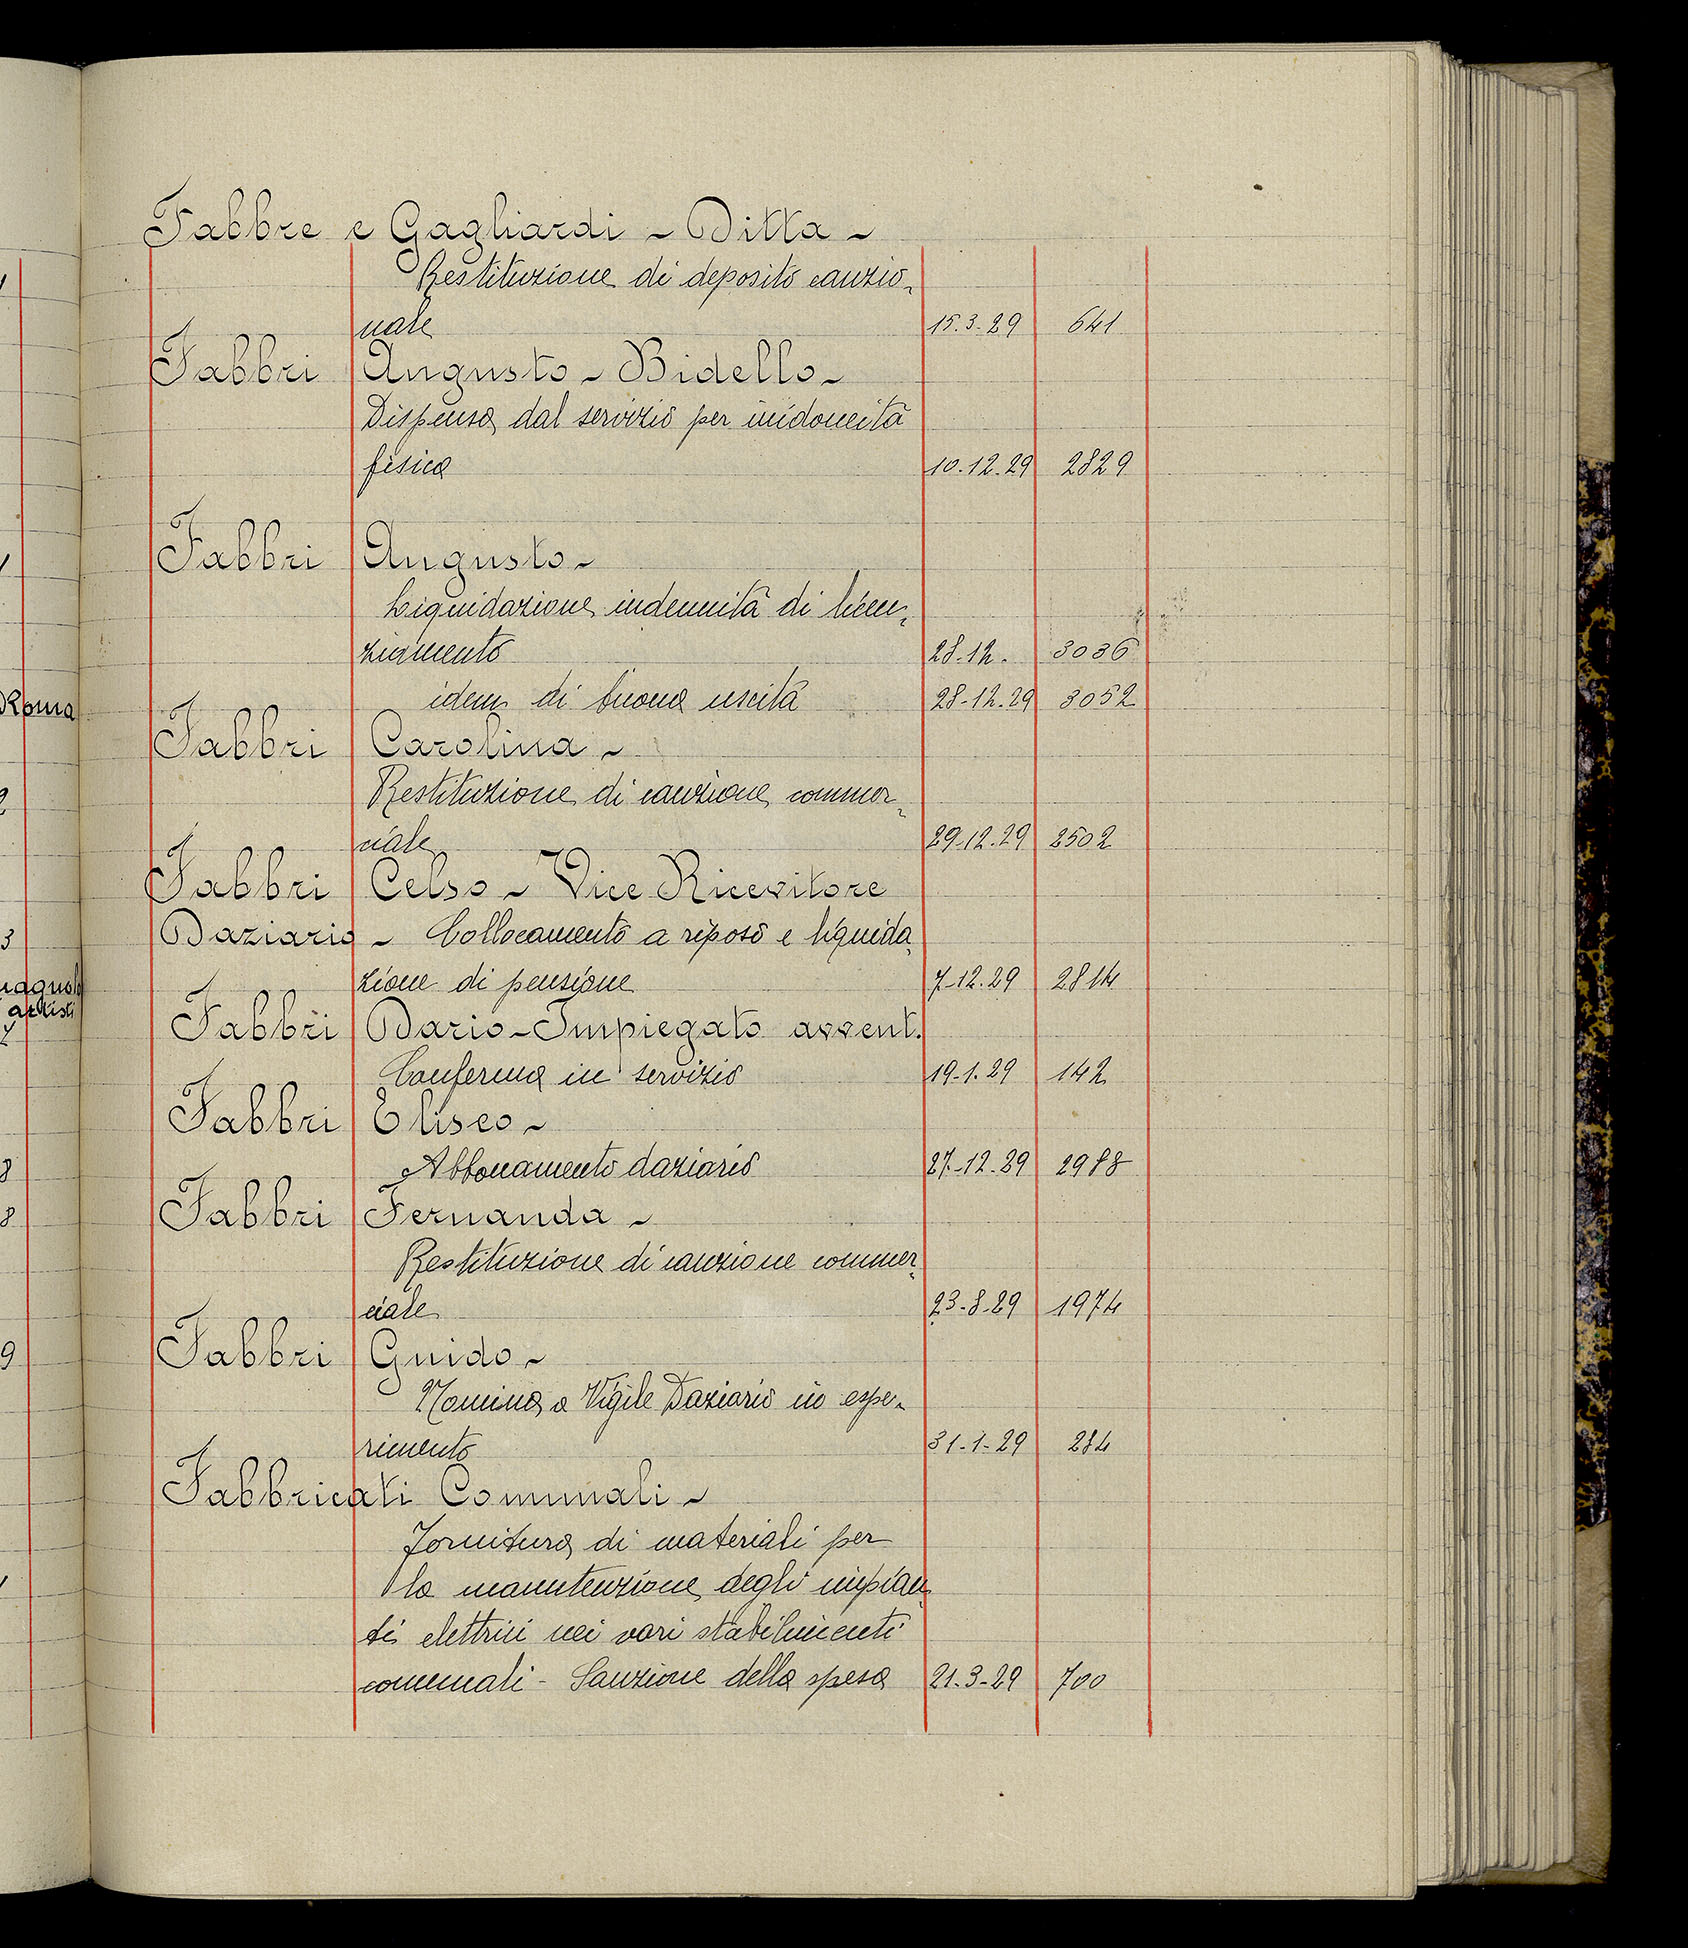 Fabbre e Gagliardi - Ditta -
Restituzione di deposito cauzio-
nale 15.3.29 641
Fabbri Augusto - Bidello -
Dispensa dal servizio per inidoneità
fisica 10.12.29 2829
Fabbri Augusto -
Liquidazione indennità di licen-
ziamento 28.12. 3036
idem di buona uscita 28-12.29 3052
Fabbri Carolina -
Restituzione di cauzione commer-
ciale 29-12.29 2502
Fabbri Celso - Vice Ricevitore
Daziario - Collocamento a riposo e liquida-
zione di pensione 7-12.29 2814
Fabbri Dario - Impiegato avvent.
Conferma in servizio 19-1.29 142
Fabbri Eliseo -
Abbonamento daziario 27-12.29 2988
Fabbri Fernanda -
Restituzione di cauzione commer-
ciale 23-8.29 1974
Fabbri Guido -
Nomina a Vigile Daziario in espe-
rimento 31-1-29 284
Fabbricati Comunali -
Fornitura di materiali per
la manutenzione degli impian-
ti elettrici nei vari stabilimenti
comunali - Sanzione della spesa 21-3-29 700
Roma
artisti